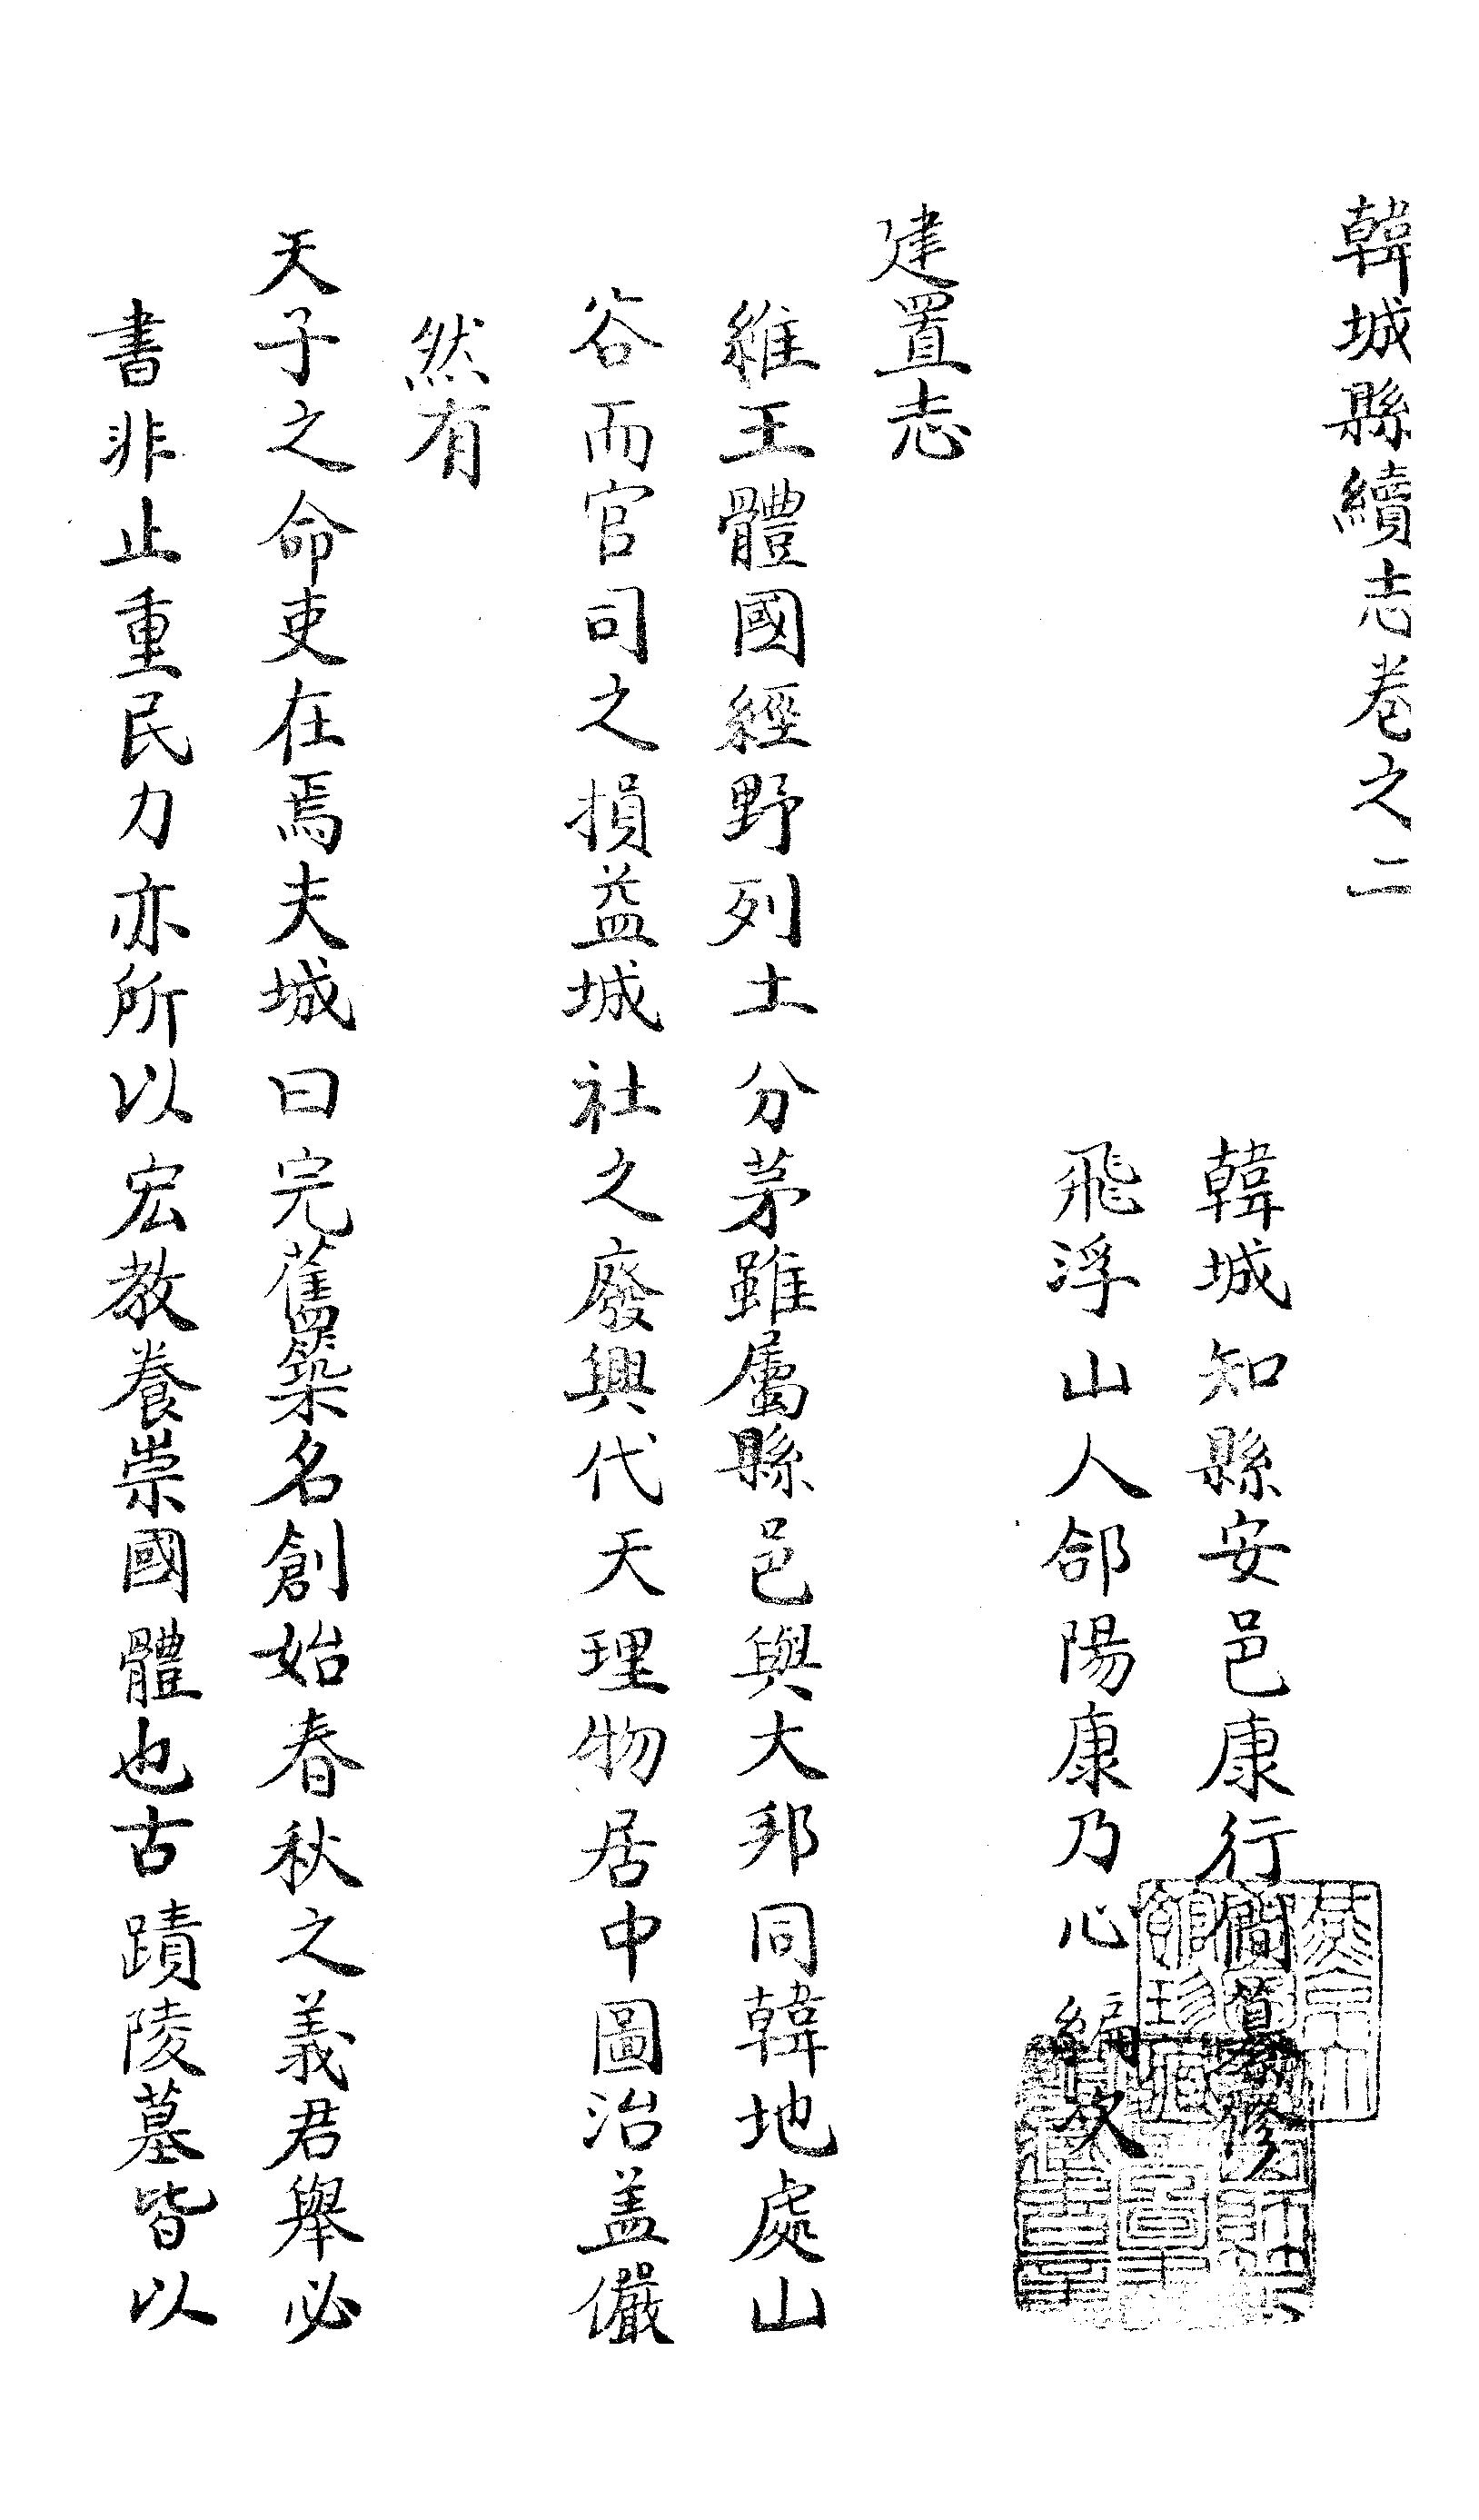 韓城縣續志卷之二
韓城知縣安邑康行僴纂修
飛浮山人郃陽康乃心編次
建置志
維王體國經野列土分茅雖屬縣邑與大邦同韓地處山
谷而官司之損益城社之廢興代天理物居中圖治盖儼
然有
天子之命吏在焉夫城曰完舊築名創始春秋之義君舉必
書非止重民力亦所以宏教養崇國體也古蹟陵墓皆以